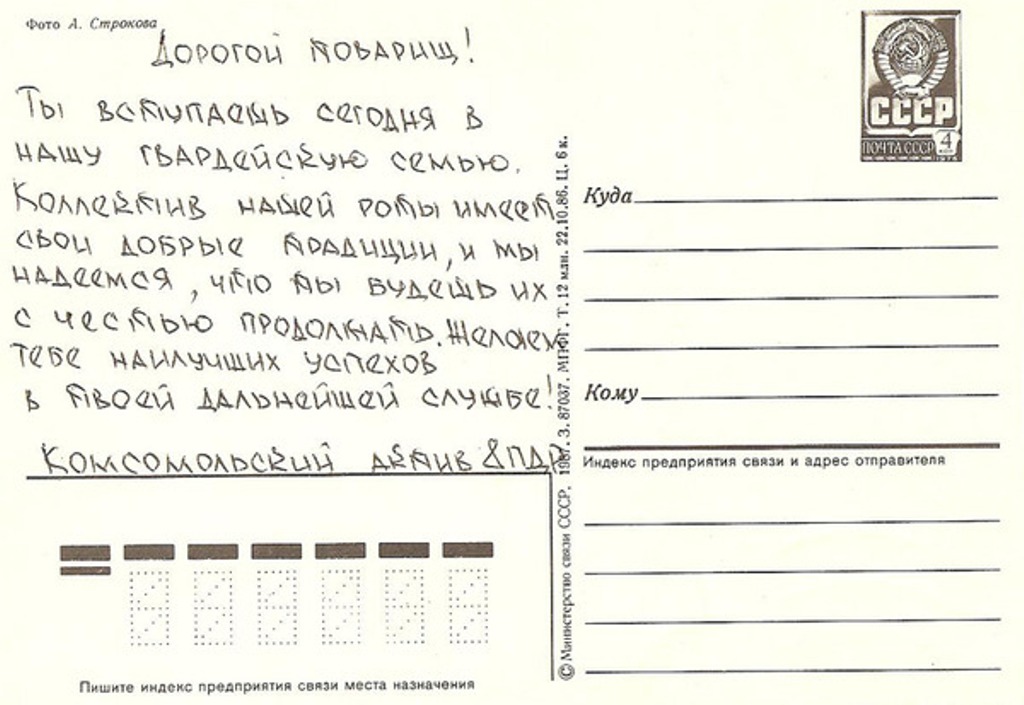 Фото А. Строкова
Дорогой товарищ!
Ты вступаешь сегодня в
нашу гвардейскую семью.
Коллектив нашей роты имеет
свои добрые традиции, и мы
надеемся, что ты будешь их
с честью продолжать. Желаем
тебе наилучших успехов
в твоей дальнейшей службе!
Комсомольский актив 8ПДР
Пишите индекс предприятия связи места назначения
© Министерство связи СССР. 1987. З. 87037. МПФГ. Т. 12 млн. 22.10.86. Ц. 6 к.
СССР
ПОЧТА СССР 4 КОП
1976
Куда
Кому
Индекс предприятия связи и адрес отправителя